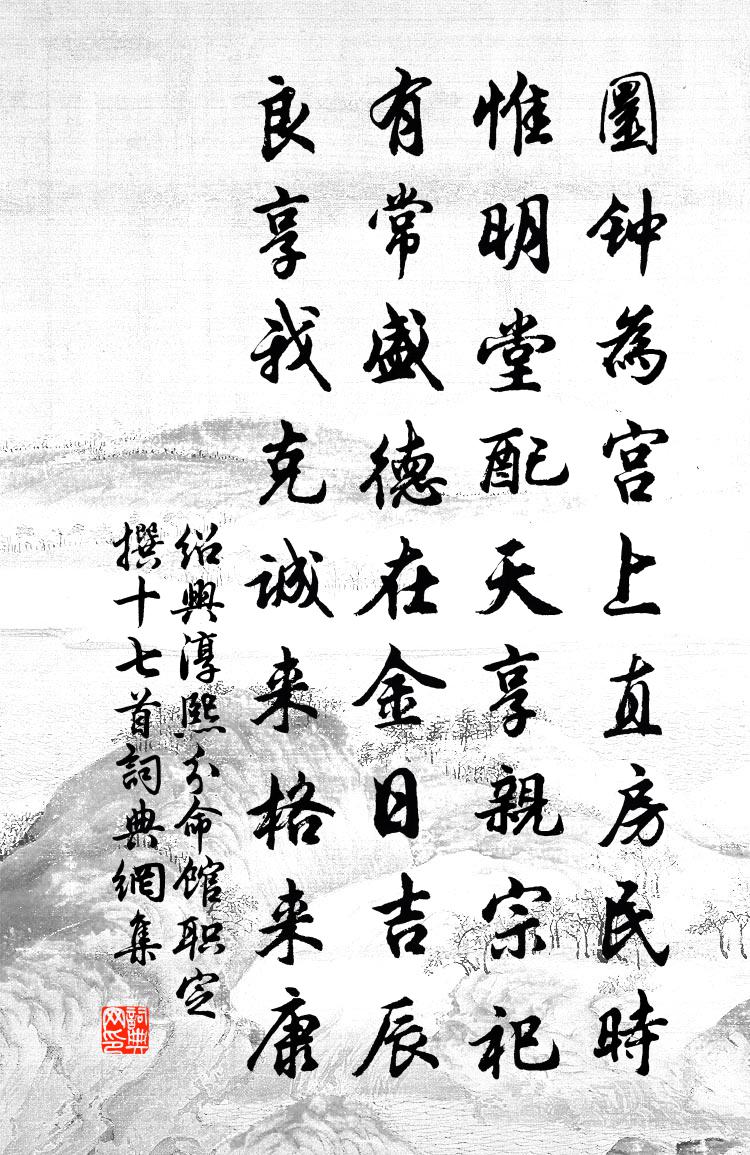 圜钟為宫上直房民時
惟明堂配天享親宗祀
有常盛德在金日吉辰
良享我克诚来格来康
绍興淳熙分命馆职定
撰十七首詞典網集
詞典网印